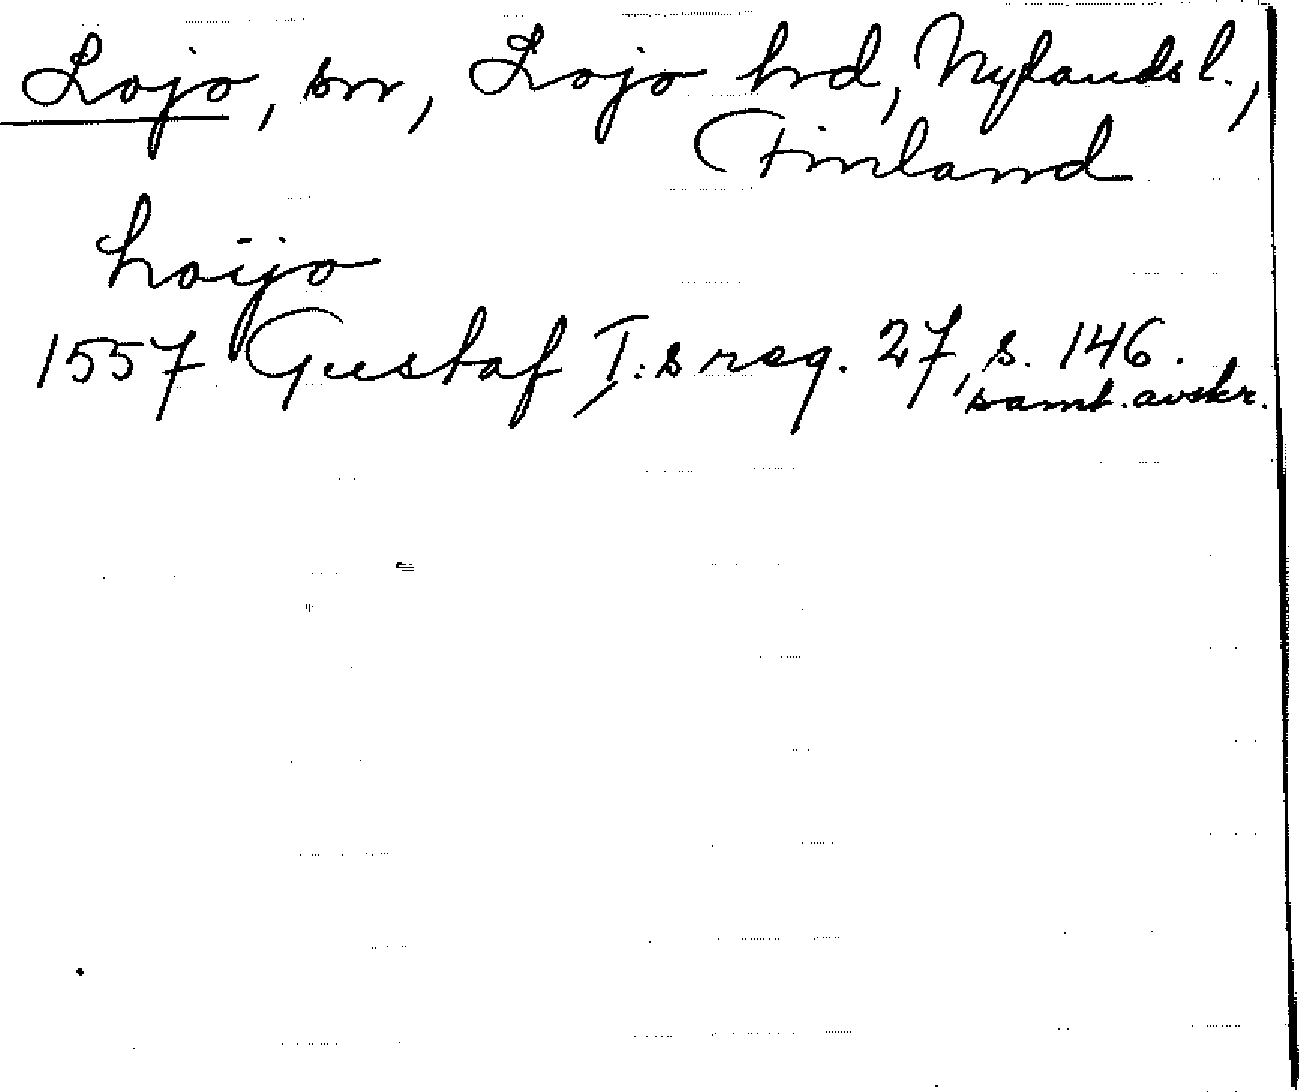 Lojo, sn, Lojo hrd, Nylands l.,
Finland
Loijo
1557 Gustaf I:s reg. 27, s. 146.
samt. avskr.